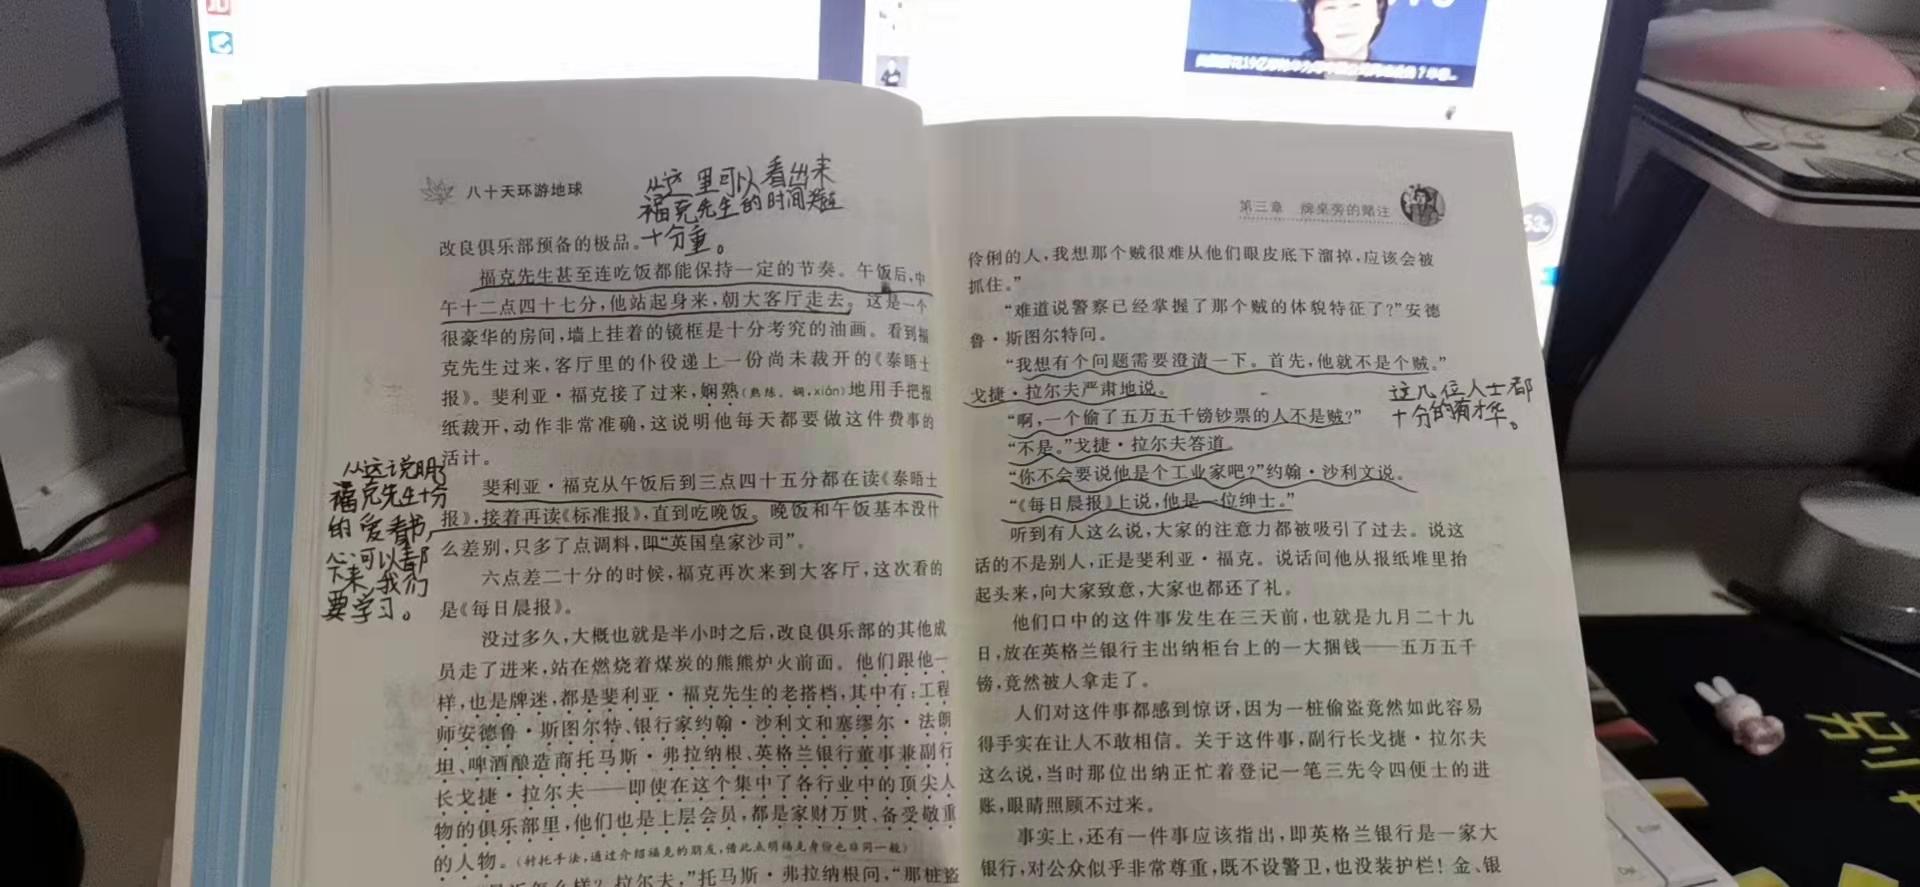 八十天环游地球
从这里可以看出来
福克先生的时间观念
十分重。
改良俱乐部预备的极品。
福克先生甚至连吃饭都能保持一定的节奏。午饭后,中
午十二点四十七分,他站起身来,朝大客厅走去。这是一个
很豪华的房间,墙上挂着的镜框是十分考究的油画。看到福
克先生过来,客厅里的仆役递上一份尚未裁开的《泰晤士
报》。斐利亚·福克接了过来,娴熟(熟练。娴,xián)地用手把报
纸裁开,动作非常准确,这说明他每天都要做这件费事的
活计。
斐利亚·福克从午饭后到三点四十五分都在读《泰晤士
报》,接着再读《标准报》,直到吃晚饭。晚饭和午饭基本没什
么差别,只多了点调料,即“英国皇家沙司”。
六点差二十分的时候,福克再次来到大客厅,这次看的
是《每日晨报》。
没过多久,大概也就是半小时之后,改良俱乐部的其他成
员走了进来,站在燃烧着煤炭的熊熊炉火前面。他们跟他一
样,也是牌迷,都是斐利亚·福克先生的老搭档,其中有:工程
师安德鲁·斯图尔特、银行家约翰·沙利文和塞缪尔·法朗
坦、啤酒酿造商托马斯·弗拉纳根、英格兰银行董事兼副行
长戈捷·拉尔夫——即使在这个集中了各行业中的顶尖人
物的俱乐部里,他们也是上层会员,都是家财万贯、备受敬重
的人物。(衬托手法,通过介绍福克的朋友,借此点明福克身份也非同一般)
怎么样?拉尔夫,”托马斯·弗拉纳根问,“那桩盗
从这说明,
福克先生十分
的爱看书,
心可以都
下来,我们
要学习。
第三章 牌桌旁的赌注
伶俐的人,我想那个贼很难从他们眼皮底下溜掉,应该会被
抓住。”
“难道说警察已经掌握了那个贼的体貌特征了?”安德
鲁·斯图尔特问。
“我想有个问题需要澄清一下。首先,他就不是个贼。”
戈捷·拉尔夫严肃地说。
“啊,一个偷了五万五千镑钞票的人不是贼?”
“不是。”戈捷·拉尔夫答道。
“你不会要说他是个工业家吧?”约翰·沙利文说。
“《每日晨报》上说,他是一位绅士。”
这几位人士都
十分的有才华。
听到有人这么说,大家的注意力都被吸引了过去。说这
话的不是别人,正是斐利亚·福克。说话间他从报纸堆里抬
起头来,向大家致意,大家也都还了礼。
他们口中的这件事发生在三天前,也就是九月二十九
日,放在英格兰银行主出纳柜台上的一大捆钱——五万五千
镑,竟然被人拿走了。
人们对这件事都感到惊讶,因为一桩偷盗竟然如此容易
得手实在让人不敢相信。关于这件事,副行长戈捷·拉尔夫
这么说,当时那位出纳正忙着登记一笔三先令四便士的进
账,眼睛照顾不过来。
事实上,还有一件事应该指出,即英格兰银行是一家大
银行,对公众似乎非常尊重,既不设警卫,也没装护栏!金、银